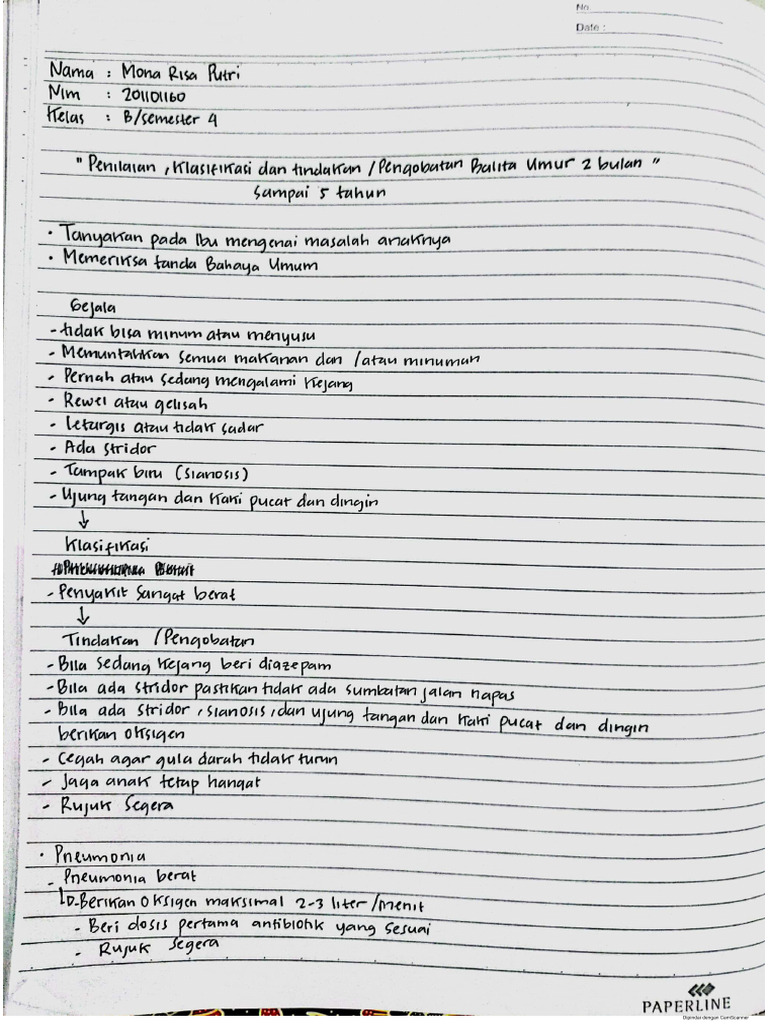 No.
Date :
Nama : Mona Risa Putri
Nim : 201101160
Kelas : B/semester 4
" Penilaian , Klasifikasi dan tindakan / Pengobatan Balita Umur 2 bulan "
Sampai 5 tahun
• Tanyakan pada Ibu mengenai masalah anaknya
• Memeriksa tanda Bahaya Umum
Gejala
- tidak bisa minum atau menyusu
- Memuntahkan semua makanan dan /atau minuman
- Pernah atau sedang mengalami Kejang
- Rewel atau gelisah
- Leturgis atau tidak sadar
- Ada stridor
- Tampak biru (sianosis)
- Ujung tangan dan Kaki pucat dan dingin
↓
Klasifikasi
- Penyakit Sangat berat
↓
Tindakan / Pengobatan
- Bila sedang Kejang beri diazepam
- Bila ada stridor pastikan tidak ada sumbatan jalan napas
- Bila ada stridor , sianosis , dan ujung tangan dan Kaki pucat dan dingin
berikan oksigen
- Cegah agar gula darah tidak turun
- Jaga anak tetap hangat
- Rujuk Segera
• Pneumonia
- Pneumonia berat
↳ Berikan Oksigen maksimal 2-3 liter /menit
- Beri dosis pertama antibiotik yang sesuai
- Rujuk Segera
PAPERLINE
Dipindai dengan CamScanner